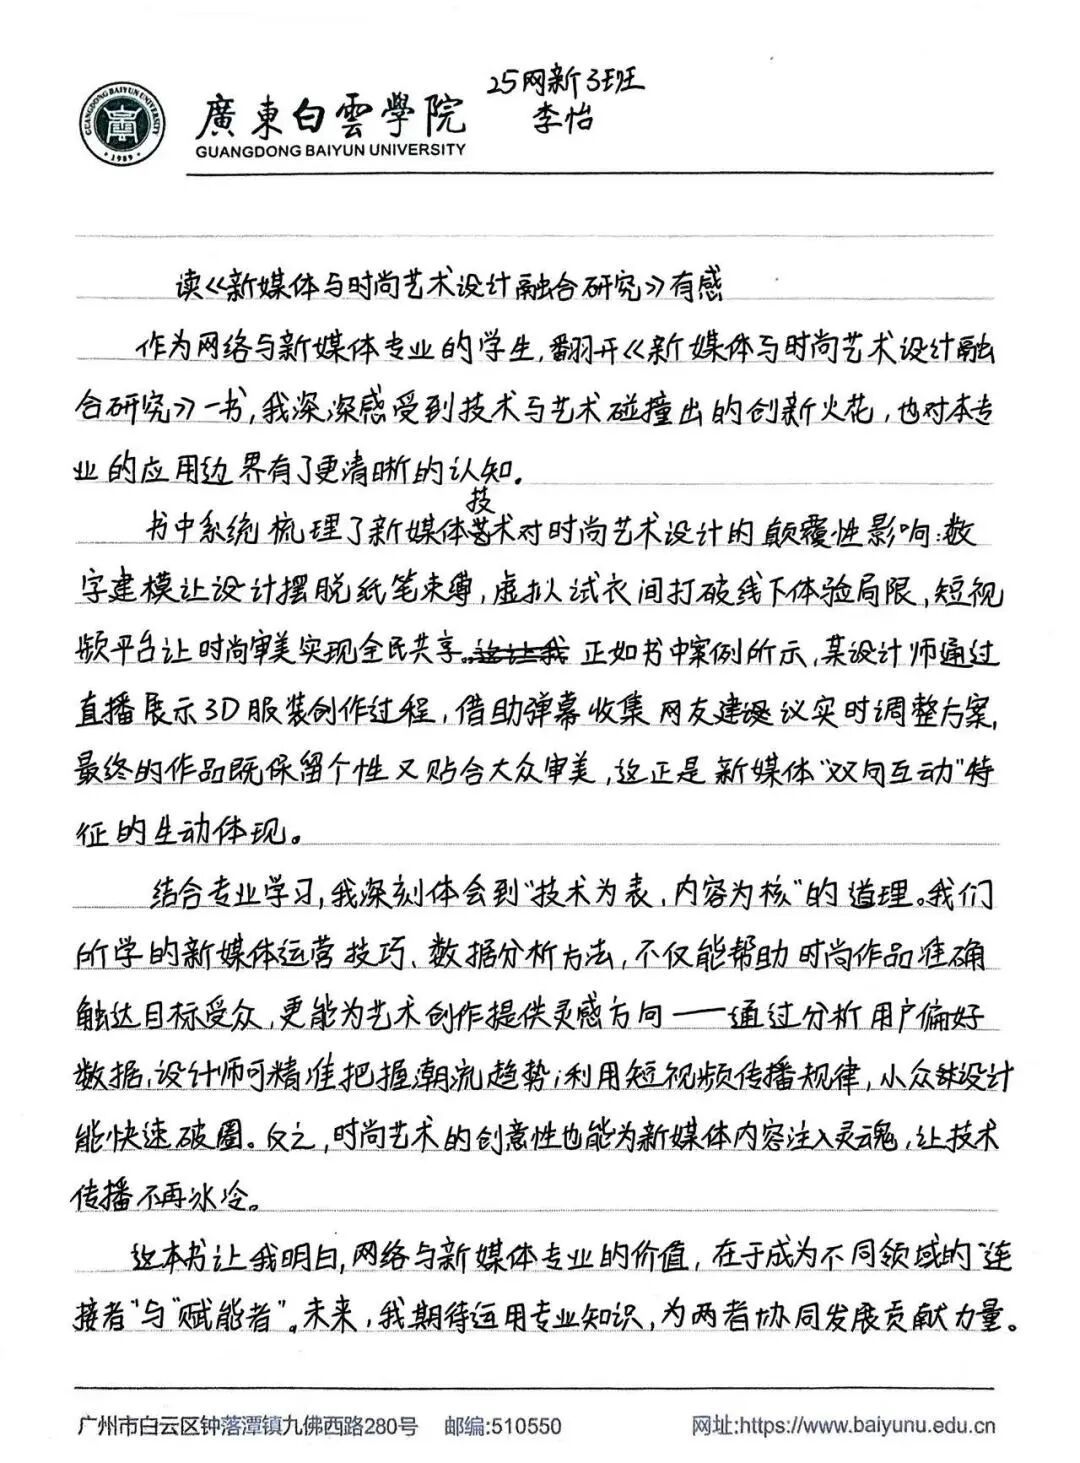 25网新3班
李怡
廣東白雲學院
GUANGDONG BAIYUN UNIVERSITY
GUANGDONG BAIYUN UNIVERSITY
1989
读《新媒体与时尚艺术设计融合研究》有感
作为网络与新媒体专业的学生,翻开《新媒体与时尚艺术设计融
合研究》一书,我深深感受到技术与艺术碰撞出的创新火花,也对本专
业的应用边界有了更清晰的认知.
书中系统梳理了新媒体技术对时尚艺术设计的颠覆性影响:数
字建模让设计摆脱纸笔束缚,虚拟试衣间打破线下体验局限,短视
频平台让时尚审美实现全民共享。这让我 正如书中案例所示,某设计师通过
直播展示3D服装创作过程,借助弹幕收集网友建议实时调整方案,
最终的作品既保留个性又贴合大众审美,这正是新媒体“双向互动”特
征的生动体现。
结合专业学习,我深刻体会到“技术为表,内容为核”的道理。我们
所学的新媒体运营技巧、数据分析方法,不仅能帮助时尚作品准确
触达目标受众,更能为艺术创作提供灵感方向——通过分析用户偏好
数据,设计师可精准把握潮流趋势;利用短视频传播规律,小众设计
能快速破圈。反之,时尚艺术的创意性也能为新媒体内容注入灵魂,让技术
传播不再冰冷。
这本书让我明白,网络与新媒体专业的价值,在于成为不同领域的“连
接者”与“赋能者”。未来,我期待运用专业知识,为两者协同发展贡献力量。
广州市白云区钟落潭镇九佛西路280号 邮编:510550 网址:https://www.baiyunu.edu.cn